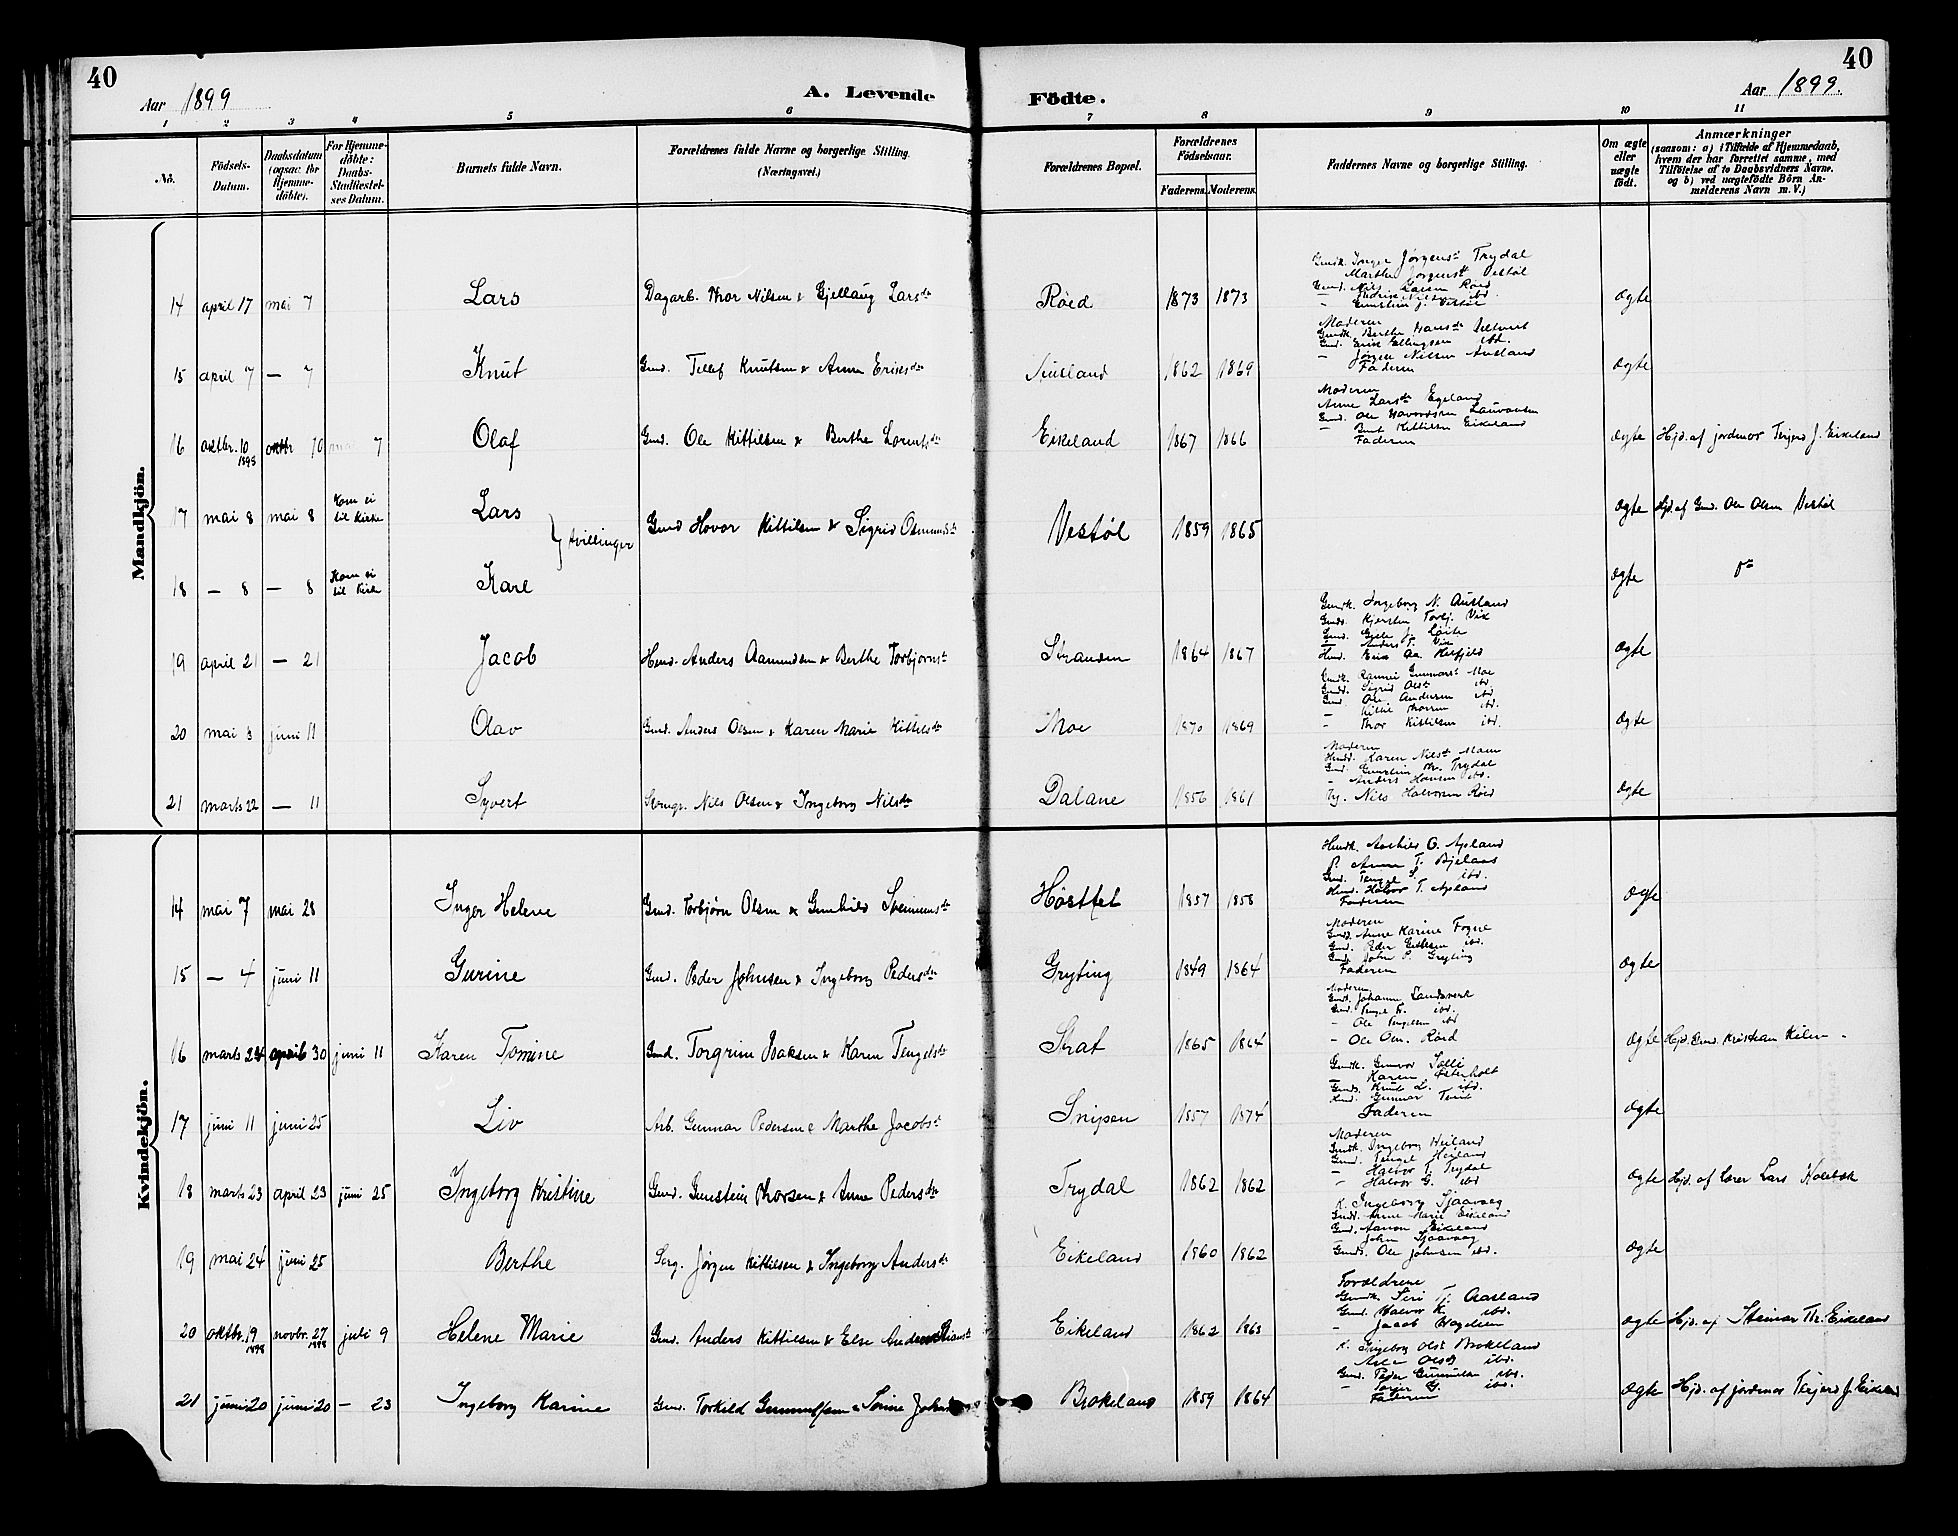 40
40
Aar 1899
A. Levende
Födte.
Aar 1899.
1 2 3 4 5 6 7 8 9 10 11
No.
Födsels-Datum.
Daabsdatum (ogsaa for Hjemme-döbte).
For Hjemme-döbte: Daabs-Stadfæstel-ses Datum.
Barnets fulde Navn.
Forældrenes fulde Navne og borgerlige Stilling. (Næringsvei.)
Forældrenes Bopæl.
Forældrenes Födselsaar.
Faderens. Moderens.
Faddernes Navne og borgerlige Stilling.
Om ægte eller uægte födt.
Anmærkninger
(saasom: a) i Tilfælde af Hjemmedaab, hvem der har forrettet samme, med Tilföielse af to Daabsvidners Navne. og b) ved uægtefödte Börn An-melderens Navn m. V.)
Mandkjön.
14 april 17 mai 7 Lars Dagarb. Thor Nilsen & Gjellaug Larsdr Röed 1873 1873 ægte
Gmdk. Inger Jørgensdr Trydal
Marthe Jørgensdr Vestøl
Gmd. Nils Larsen Röed
15 april 7 — 7 Knut Gmd. Tellef Knutsen & Anne Eriksdr Ausland 1862 1869 ægte
Moderen
Gmdk. Berthe Hansdr
Gmd. Erik Ellingsen ibd.
— Jørgen Nilsen Ausland
Faderen
16 oktbr. 10 1898 oktbr 10 7 Olaf Gmd. Ole Kittilsen & Berthe Eikeland 1867 1866 ægte Hjd. af jordmor Terjerd J. Eikeland
Moderen
Anne Larsdr Egeland
Gmd. Ole
— Kittilsen Eikeland
Faderen
17 mai 8 mai 8 Kom ei til Kirke Lars } tvillinger Gmd Hovor Kittilsen & Sigrid Osmundsdr Vestøl 1859 1865 ægte Hjd. af Gmd. Ole Olsen Vestøl
18 — 8 — 8 Kom ei til Kirke Karl ægte do
19 april 21 — 21 Jacob Hmd. Anders Aamundsen & Berthe Torbjørnsdr Stranden 1864 1867 ægte
Gmdk. Ingeborg N. Ausland
Gmdd. Kjersten Torbj. Vik
20 mai 3 juni 11 Olav Gmd. Anders Olsen & Karen Marie Kittilsdr Moe 1870 1869 ægte
Gmdk. Gunnarsdr Moe
Gmdd. Sigrid Olsdr ibd
Gmd. Ole Andersen ibd
— Kittil Thorsen ibd.
— Thor Kittilsen ibd.
21 marts 22 — 11 Syvert Nils Olsen & Ingeborg Nilsdr Dalane 1856 1861 ægte
Moderen
Karen Nilsdr
Gmd. Gunstein Th. Trydal
— Anders Hansen ibd.
Ug. Nils Halvorsen Röed
Kvindekjön.
14 mai 7 mai 28 Inger Helene Gmd. Torbjörn Olsen & Gunhild Høstfet 1857 1858 ægte
O. Apland
P. Anne T. Bjelaas
Gmd. Tengel S. ibd.
Hmd. Halvor T. Apland
Faderen
15 — 4 juni 11 Gurine Gmd. Peder Johnsen & Ingeborg Pedersdr Gryting 1849 1864 ægte
Moderen
Gmdd. Anne Karine Fogne
Gmd. Peder ibd.
Gmd. John P. Gryting
Faderen
16 marts 24 april 30 juni 11 Karen Tomine Gmd. Torgrim Isaksen & Karen Tengelsdr Strat 1865 1864 ægte Hjd. Gmd. Kristian
Moderen
Gmdk. Johanne Landsverk
Gmd. Tengel T. ibd.
— Ole Tengelsen ibd
— Ole Olsen Röed
17 juni 11 juni 25 Liv Arb. Gunnar Pedersen & Marthe Jacobsdr Snipen 1857 1874 ægte
Gmdk. Gunvor Solli
— Karen Østerholt
Gmd. Knut L. ibd.
Gunnar
Faderen
18 marts 23 april 23 juni 25 Ingeborg Kristine Gmd. Gunstein Thorsen & Anne Pedersdr Trydal 1862 1862 ægte Hjd. af lærer Lars
Moderen
Gmdk. Ingeborg Heiland
Gmd. Tengel Heiland
— Halvor T. Trydal
— Halvor G. ibd
19 mai 24 juni 25 Berthe Jørgen Kittilsen & Ingeborg Andersdr Eikeland 1860 1862 ægte
K. Ingeborg Sjaavaag
Gmdd. Anne Marie Eikeland
Gmd. Aanon Eikeland
— John Sjaavaag
Gmds. Ole Johnsen ibd.
20 oktbr. 19 1898 novbr. 27 1898 juli 9 Helene Marie Gmd. Anders Kittilsen & Else Eikeland 1862 1863 ægte Hjd. af Steinar Th. Eikeland
Forældrene
Gmdk. Siri T. Aasland
Gmd. Halvor K. ibd.
— Jacob
21 juni 20 juni 20 — 23 Ingeborg Karine Gmd. Torkild Gunnulfsen & Brokeland 1859 1864 ægte Hjd. af jordmor Terjerd J. Eikeland
K. Ingeborg Olsdr Brokeland
Olsdr ibd.
Gmd. Peder Gunnulfsen ibd.
Faderen